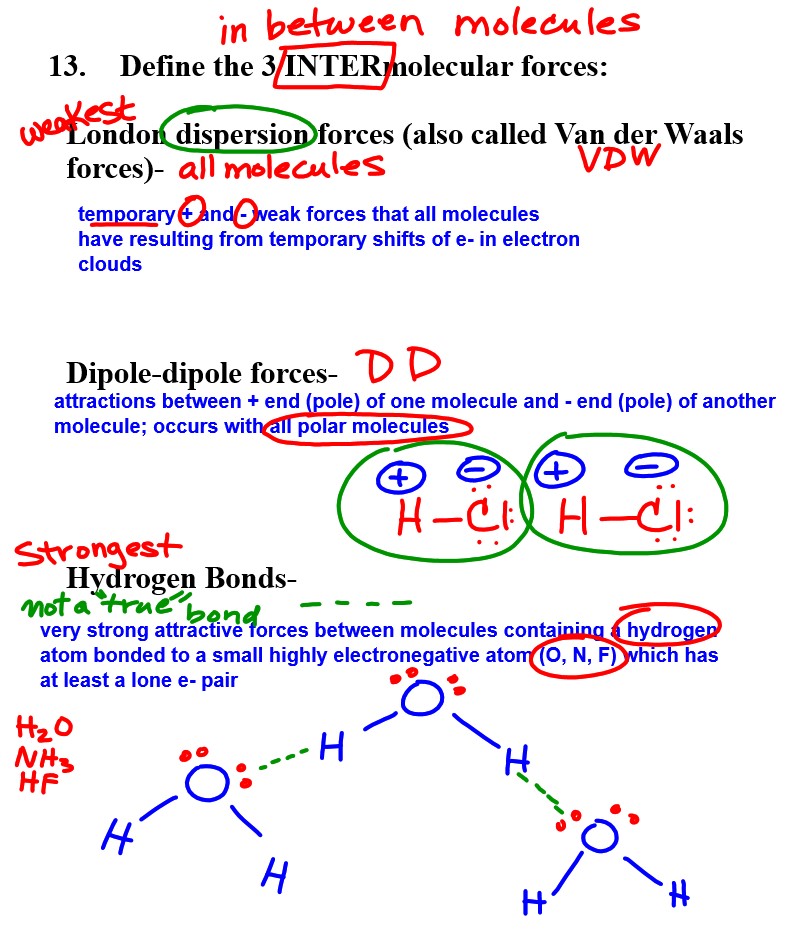 in between molecules
13. Define the 3 INTERmolecular forces:
weakest
London dispersion forces (also called Van der Waals
forces)- all molecules VDW
temporary + and - weak forces that all molecules
have resulting from temporary shifts of e- in electron
clouds
Dipole-dipole forces- DD
attractions between + end (pole) of one molecule and - end (pole) of another
molecule; occurs with all polar molecules
+ - + -
H-Cl: H-Cl:
Strongest
Hydrogen Bonds-
not a "true" bond ----
very strong attractive forces between molecules containing a hydrogen
atom bonded to a small highly electronegative atom (O, N, F) which has
at least a lone e- pair
H₂O
NH₃
HF
O
H H
O
H H
O
H H